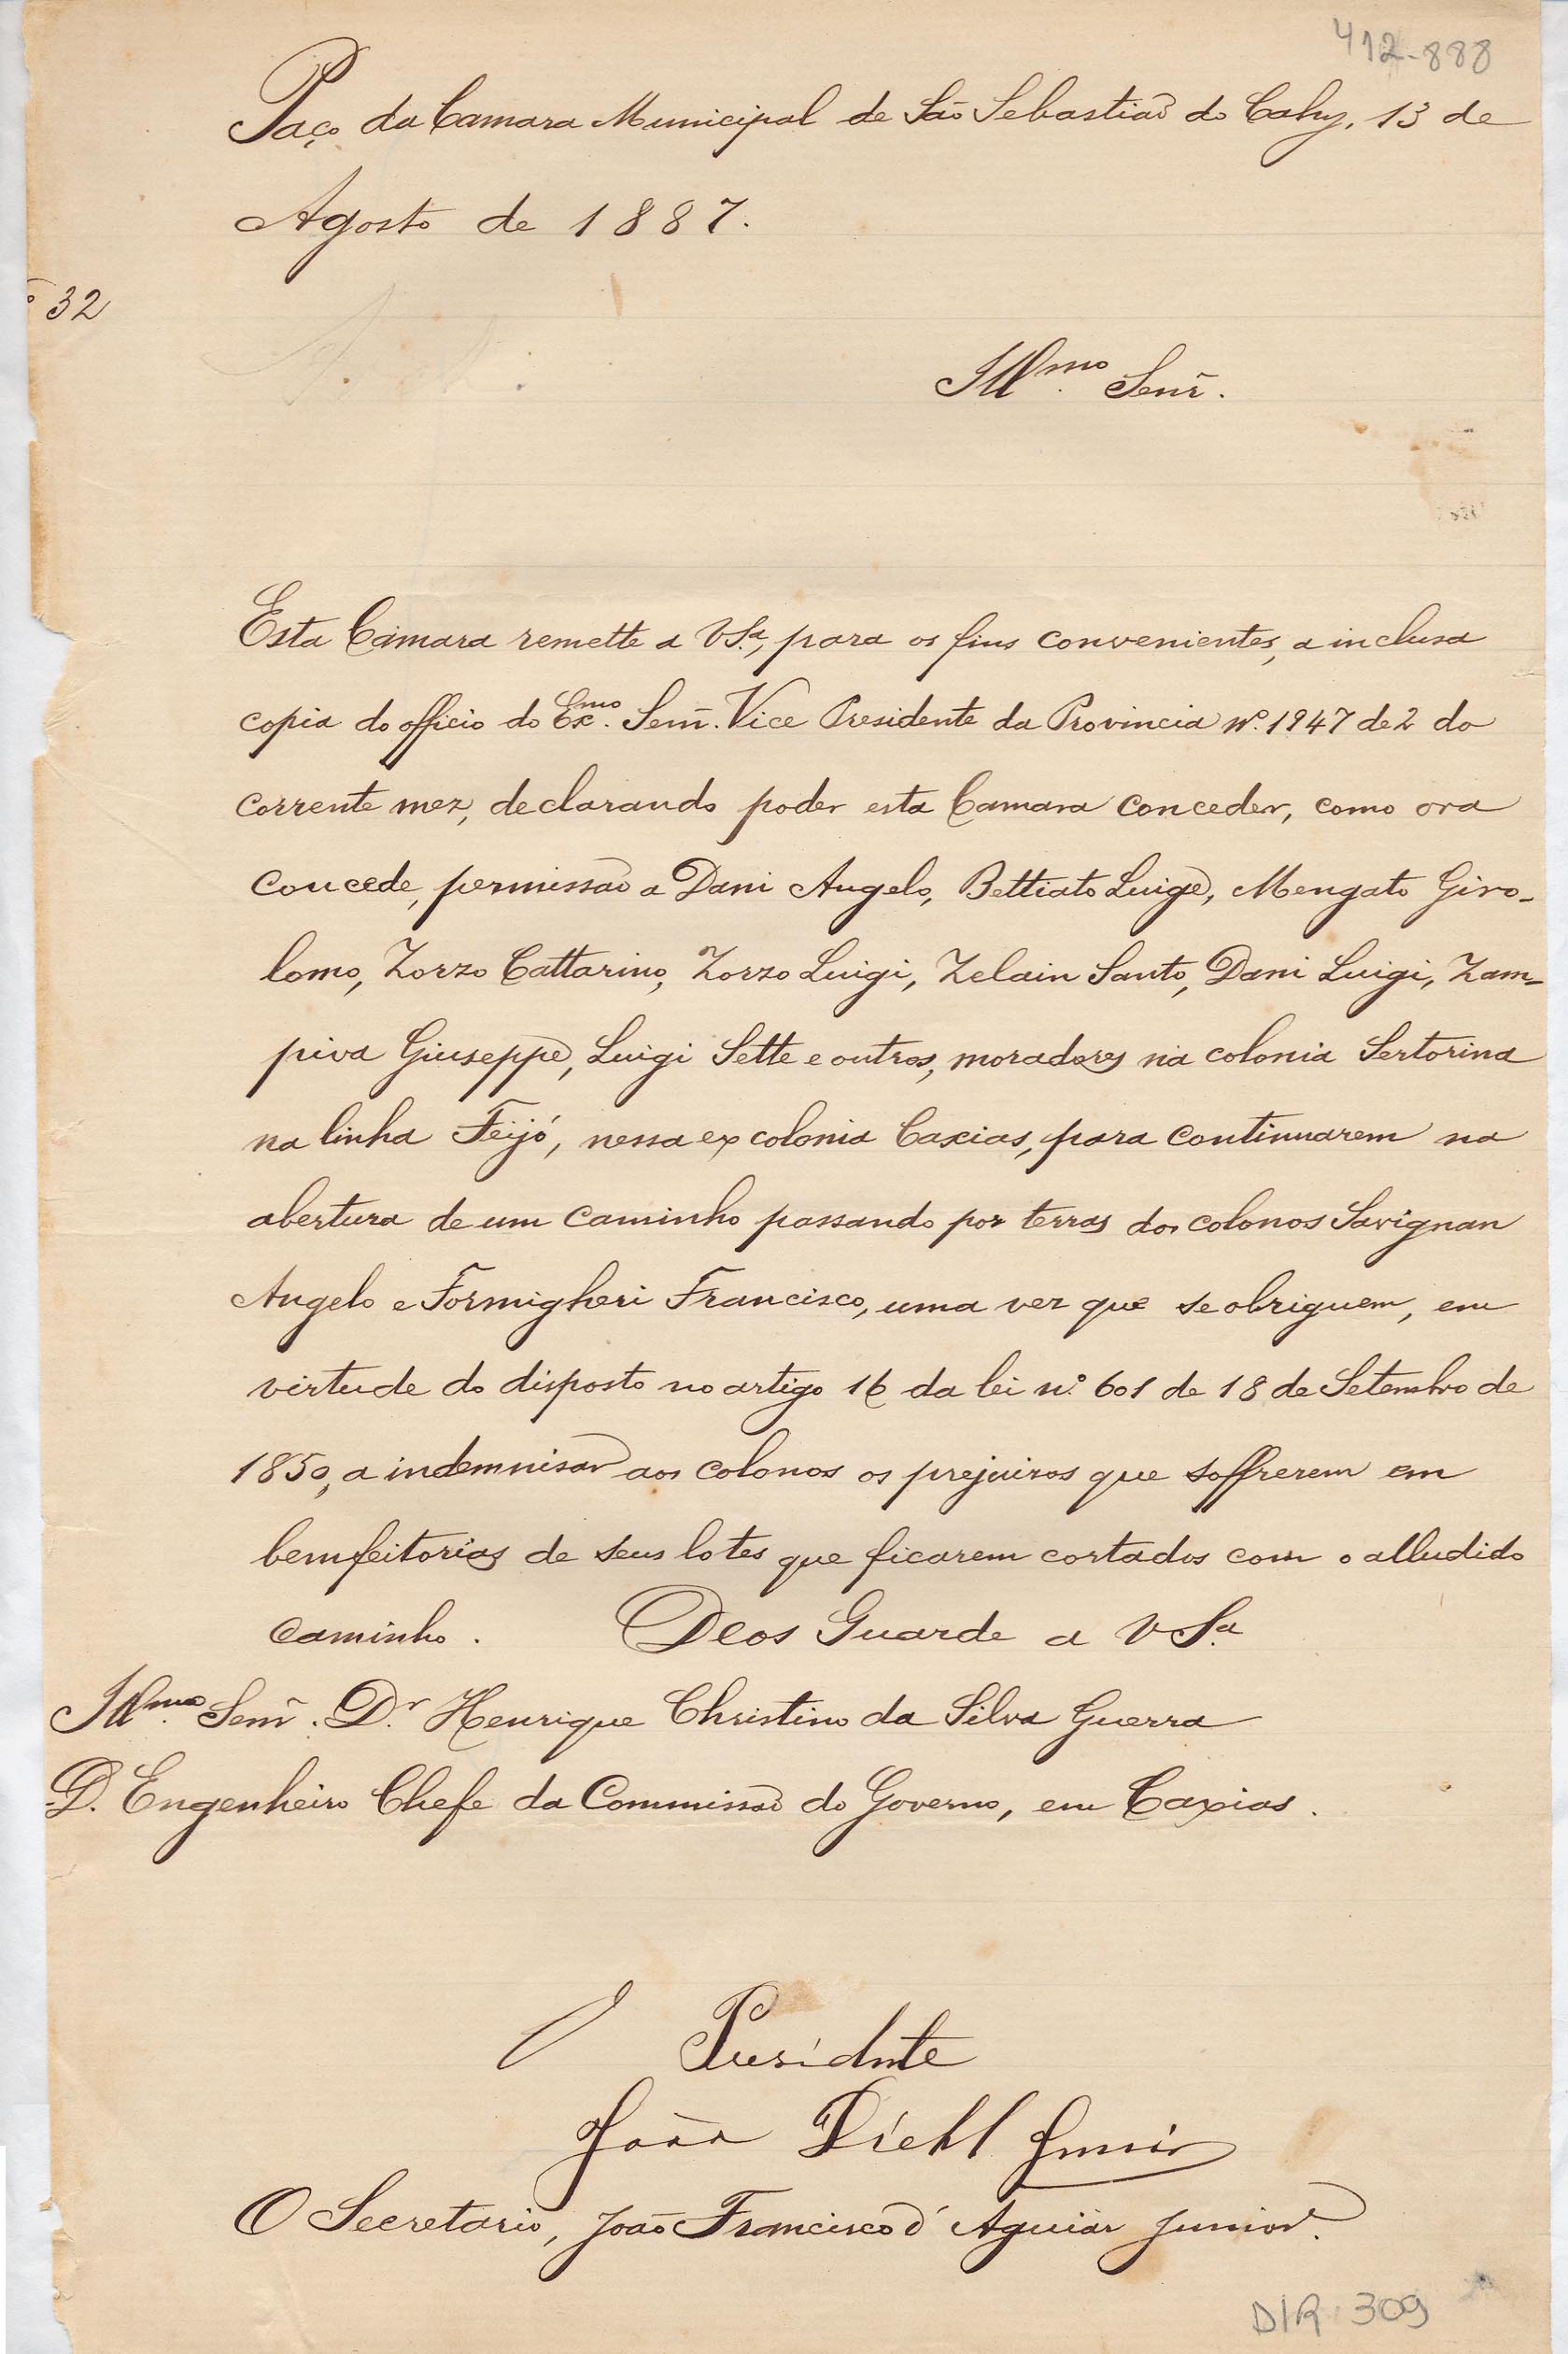 412-888
Paço da Camara Municipal de São Sebastião do Cahy, 13 de
Agosto de 1887.
º 32
Illmo. Senr.
Esta Camara remette a VSª, para os fins convenientes, a inclusa
copia do officio do Exmo. Senr. Vice Presidente da Provincia nº. 1947 de 2 do
corrente mez, declarando poder esta Camara conceder, como ora
concede, permissão a Dani Angelo, Bettiato Luige, Mengato Giro-
lomo, Zorzo Cattarino, Zorzo Luigi, Zelain Santo, Dani Luigi, Zam-
piva Giuseppe, Luigi Sette e outros, moradores na colonia Sertorina
na linha Feijó, nessa ex colonia Caxias, para continuarem na
abertura de um caminho passando por terras dos colonos Savignan
Angelo e Formigheri Francisco, uma vez que se obriguem, em
virtude do disposto no artigo 16 da lei nº 601 de 18 de Setembro de
1850, a indemnisar aos colonos os prejuizos que soffrerem em
bemfeitorias de seus lotes que ficarem cortados com o alludido
caminho. Deos Guarde a VSª
Illmo. Senr. Dr. Henrique Christino da Silva Guerra
D. Engenheiro Chefe da Commissão do Governo, em Caxias.
O Presidente
João Diehl Junior
O Secretario, João Francisco d'Aguiar Junior.
DIR 309